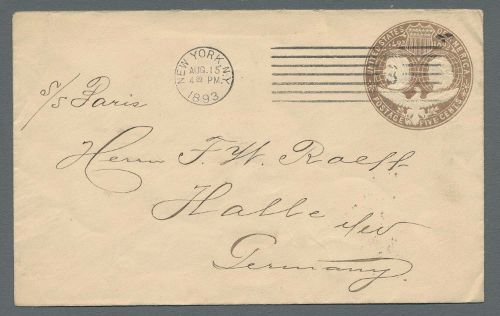 NEW YORK, N.Y.
AUG. 15
4 PM.
1893
UNITED STATES OF AMERICA
1492 1892
POSTAGE FIVE CENTS
S/S Paris
Herrn F. W.
Halle
Germany.